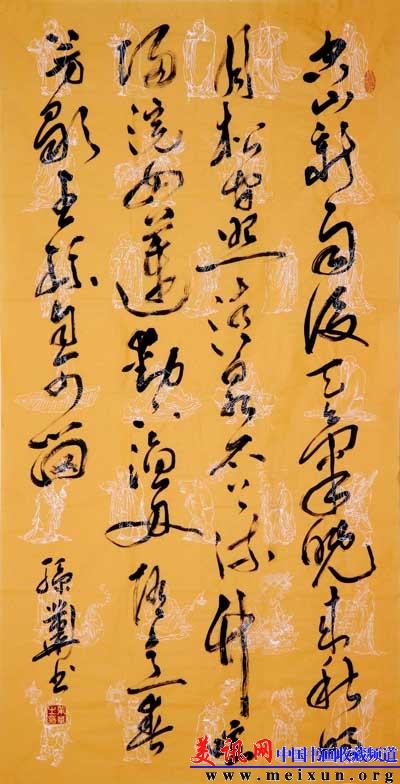 空山新雨後天氣晚來秋明
月松間照清泉石上流竹喧
歸浣女蓮動下漁舟隨意春
芳歇王孫自可留
孫 书
美讯网 中国书画收藏频道
www.meixun.org